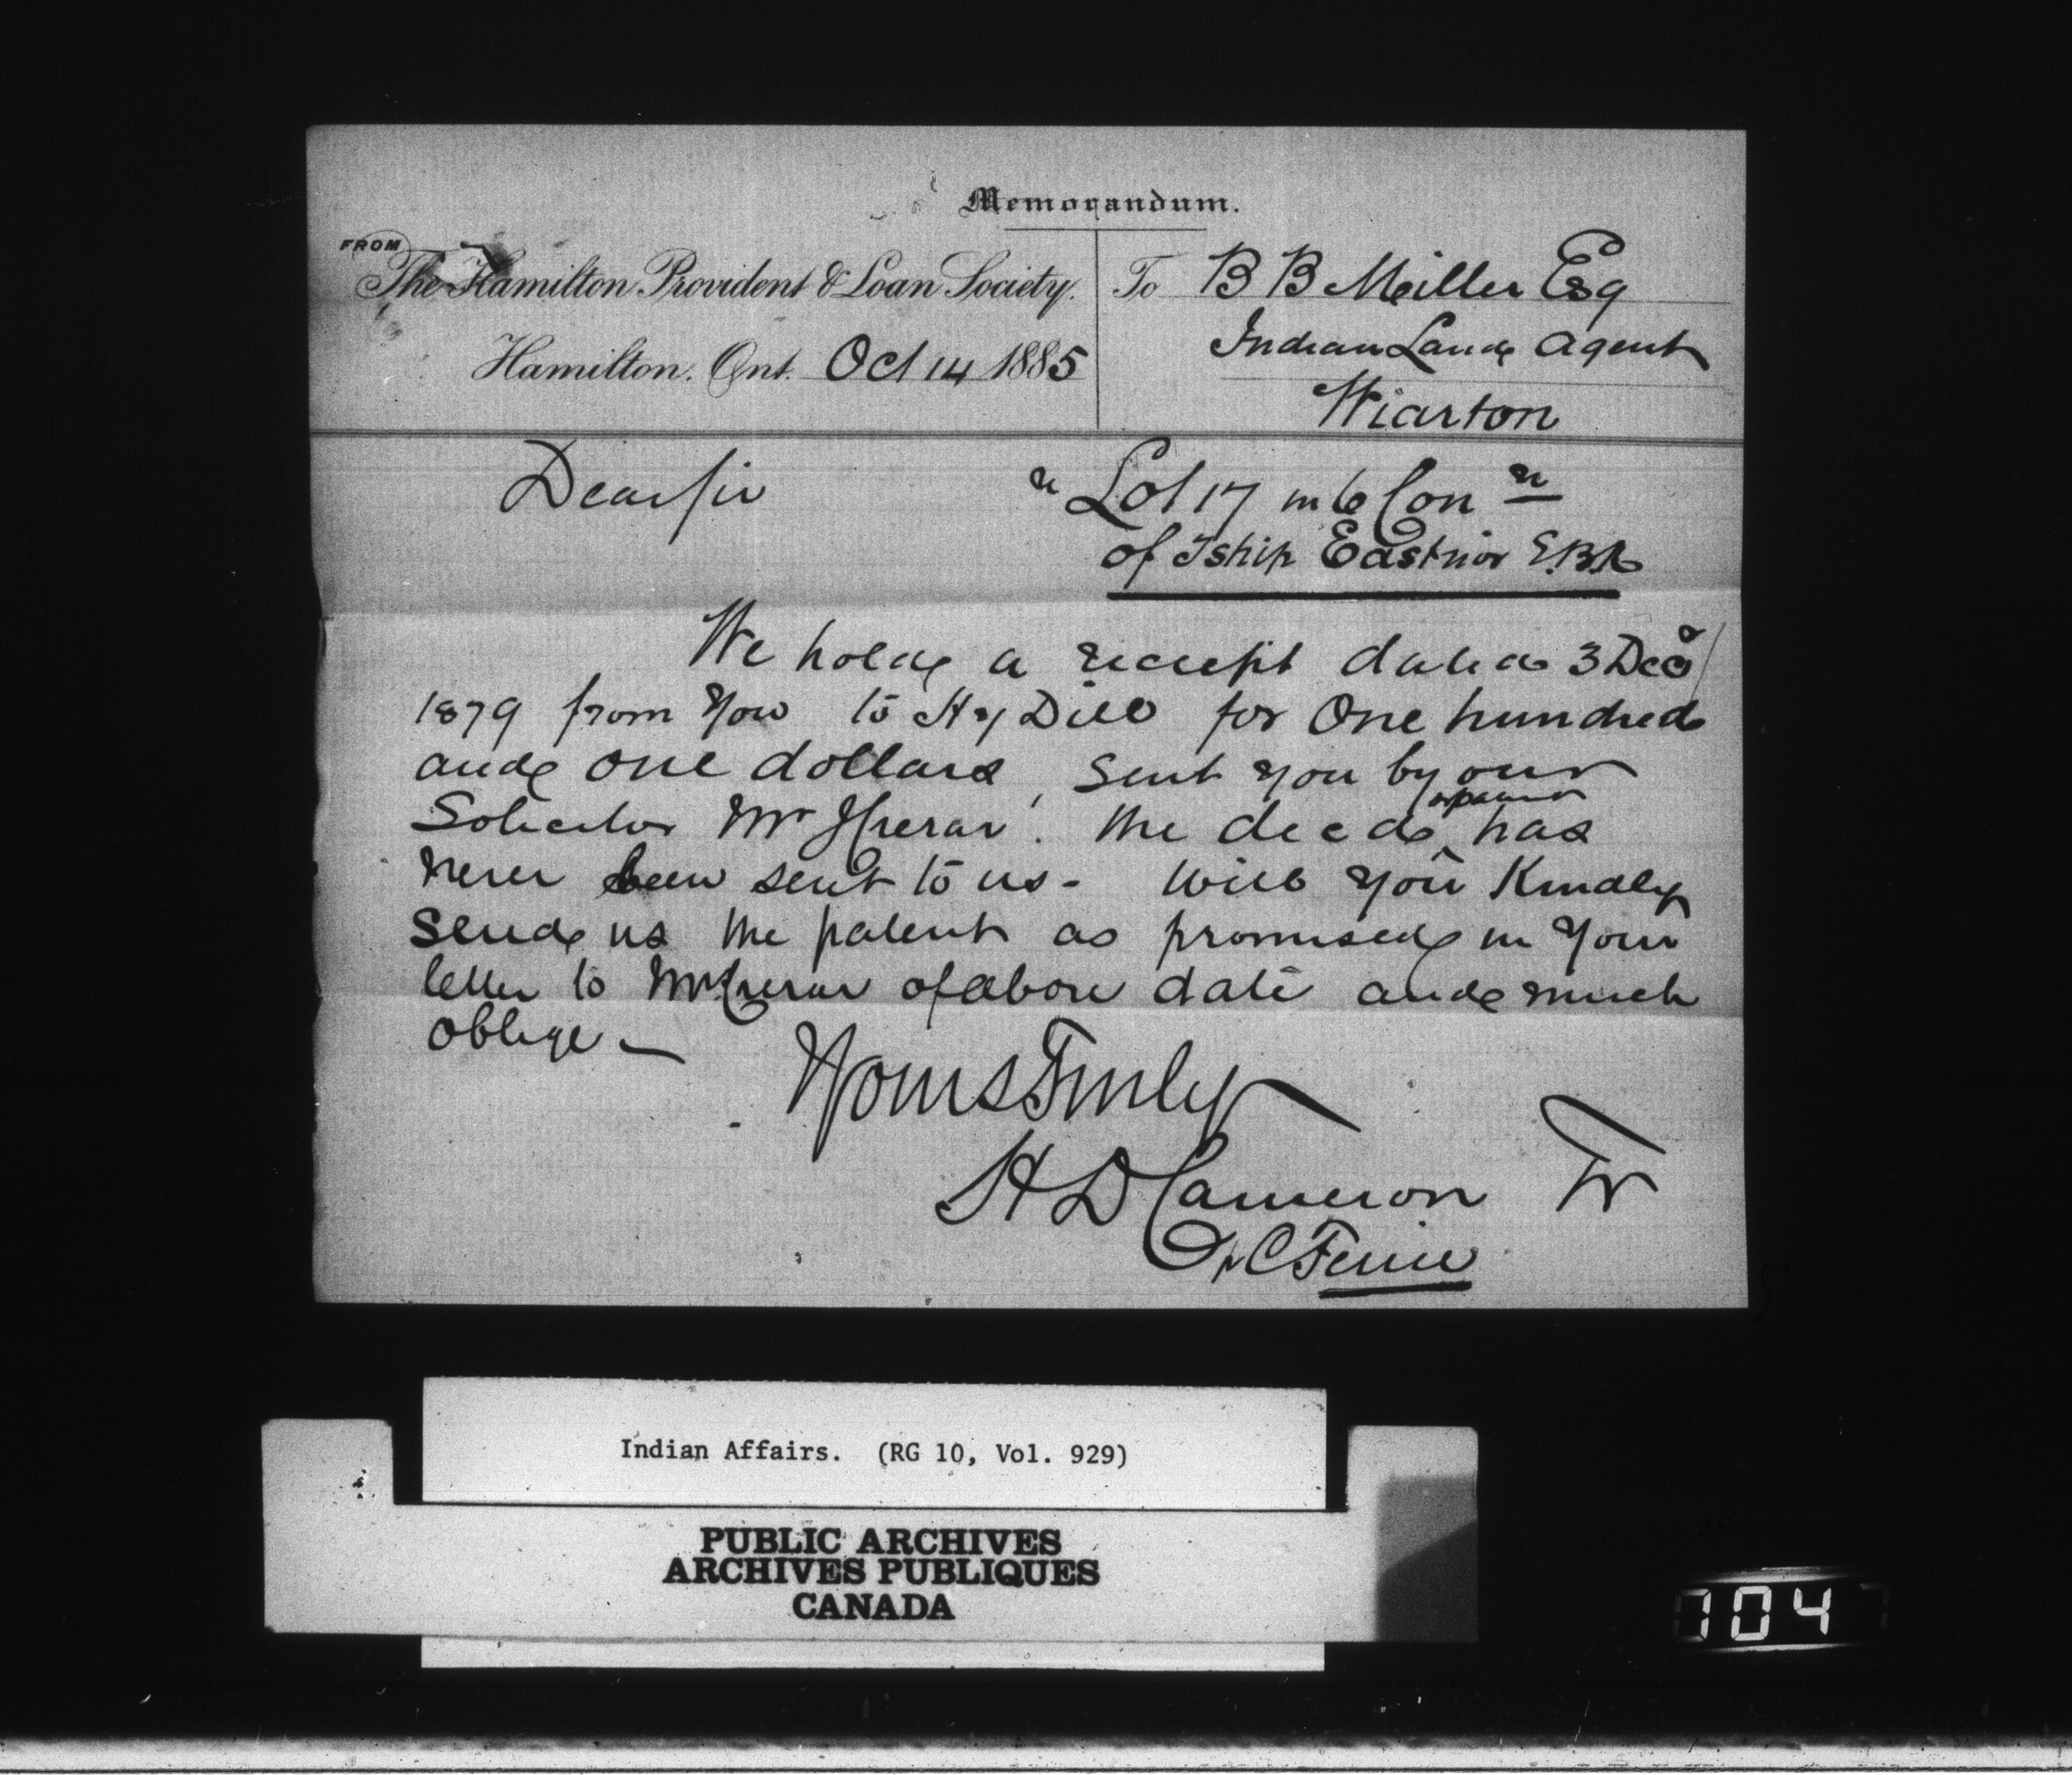 Memorandum.
FROM
The Hamilton Provident & Loan Society.
Hamilton. Ont. Oct 14 1885
To B B Miller Esq
Indian Land Agent
Wiarton
Dear Sir
re Lot 17 in 6 Con n
of Tship Eastnor E.B.R
We hold a receipt dated 3 Dec
1879 from you to Hy Dill for One hundred
and one dollars, sent you by our
Solicitor Mr Crerar. The deed or patent has
never been sent to us - Will you Kindly
send us the patent as promised in your
letter to Mr Crerar of above date and much
oblige —
Yours Truly
H D Cameron Tr
pr C Ferrie
Indian Affairs. (RG 10, Vol. 929)
PUBLIC ARCHIVES
ARCHIVES PUBLIQUES
CANADA
104